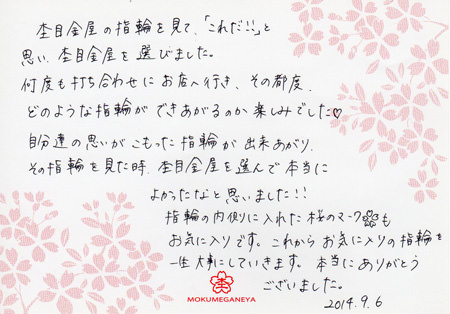 杢目金屋の指輪を見て、「これだ!!」と
思い、杢目金屋を選びました。
何度も打ち合わせにお店へ行き、その都度、
どのような指輪ができあがるのか楽しみでした♡
自分達の思いがこもった指輪が出来あがり、
その指輪を見た時、杢目金屋を選んで本当に
よかったなと思いました!!
指輪の内側に入れた桜のマークも
お気に入りです。これからお気に入りの指輪を
一生大事にしていきます。本当にありがとう
ございました。
杢
MOKUMEGANEYA
2014.9.6